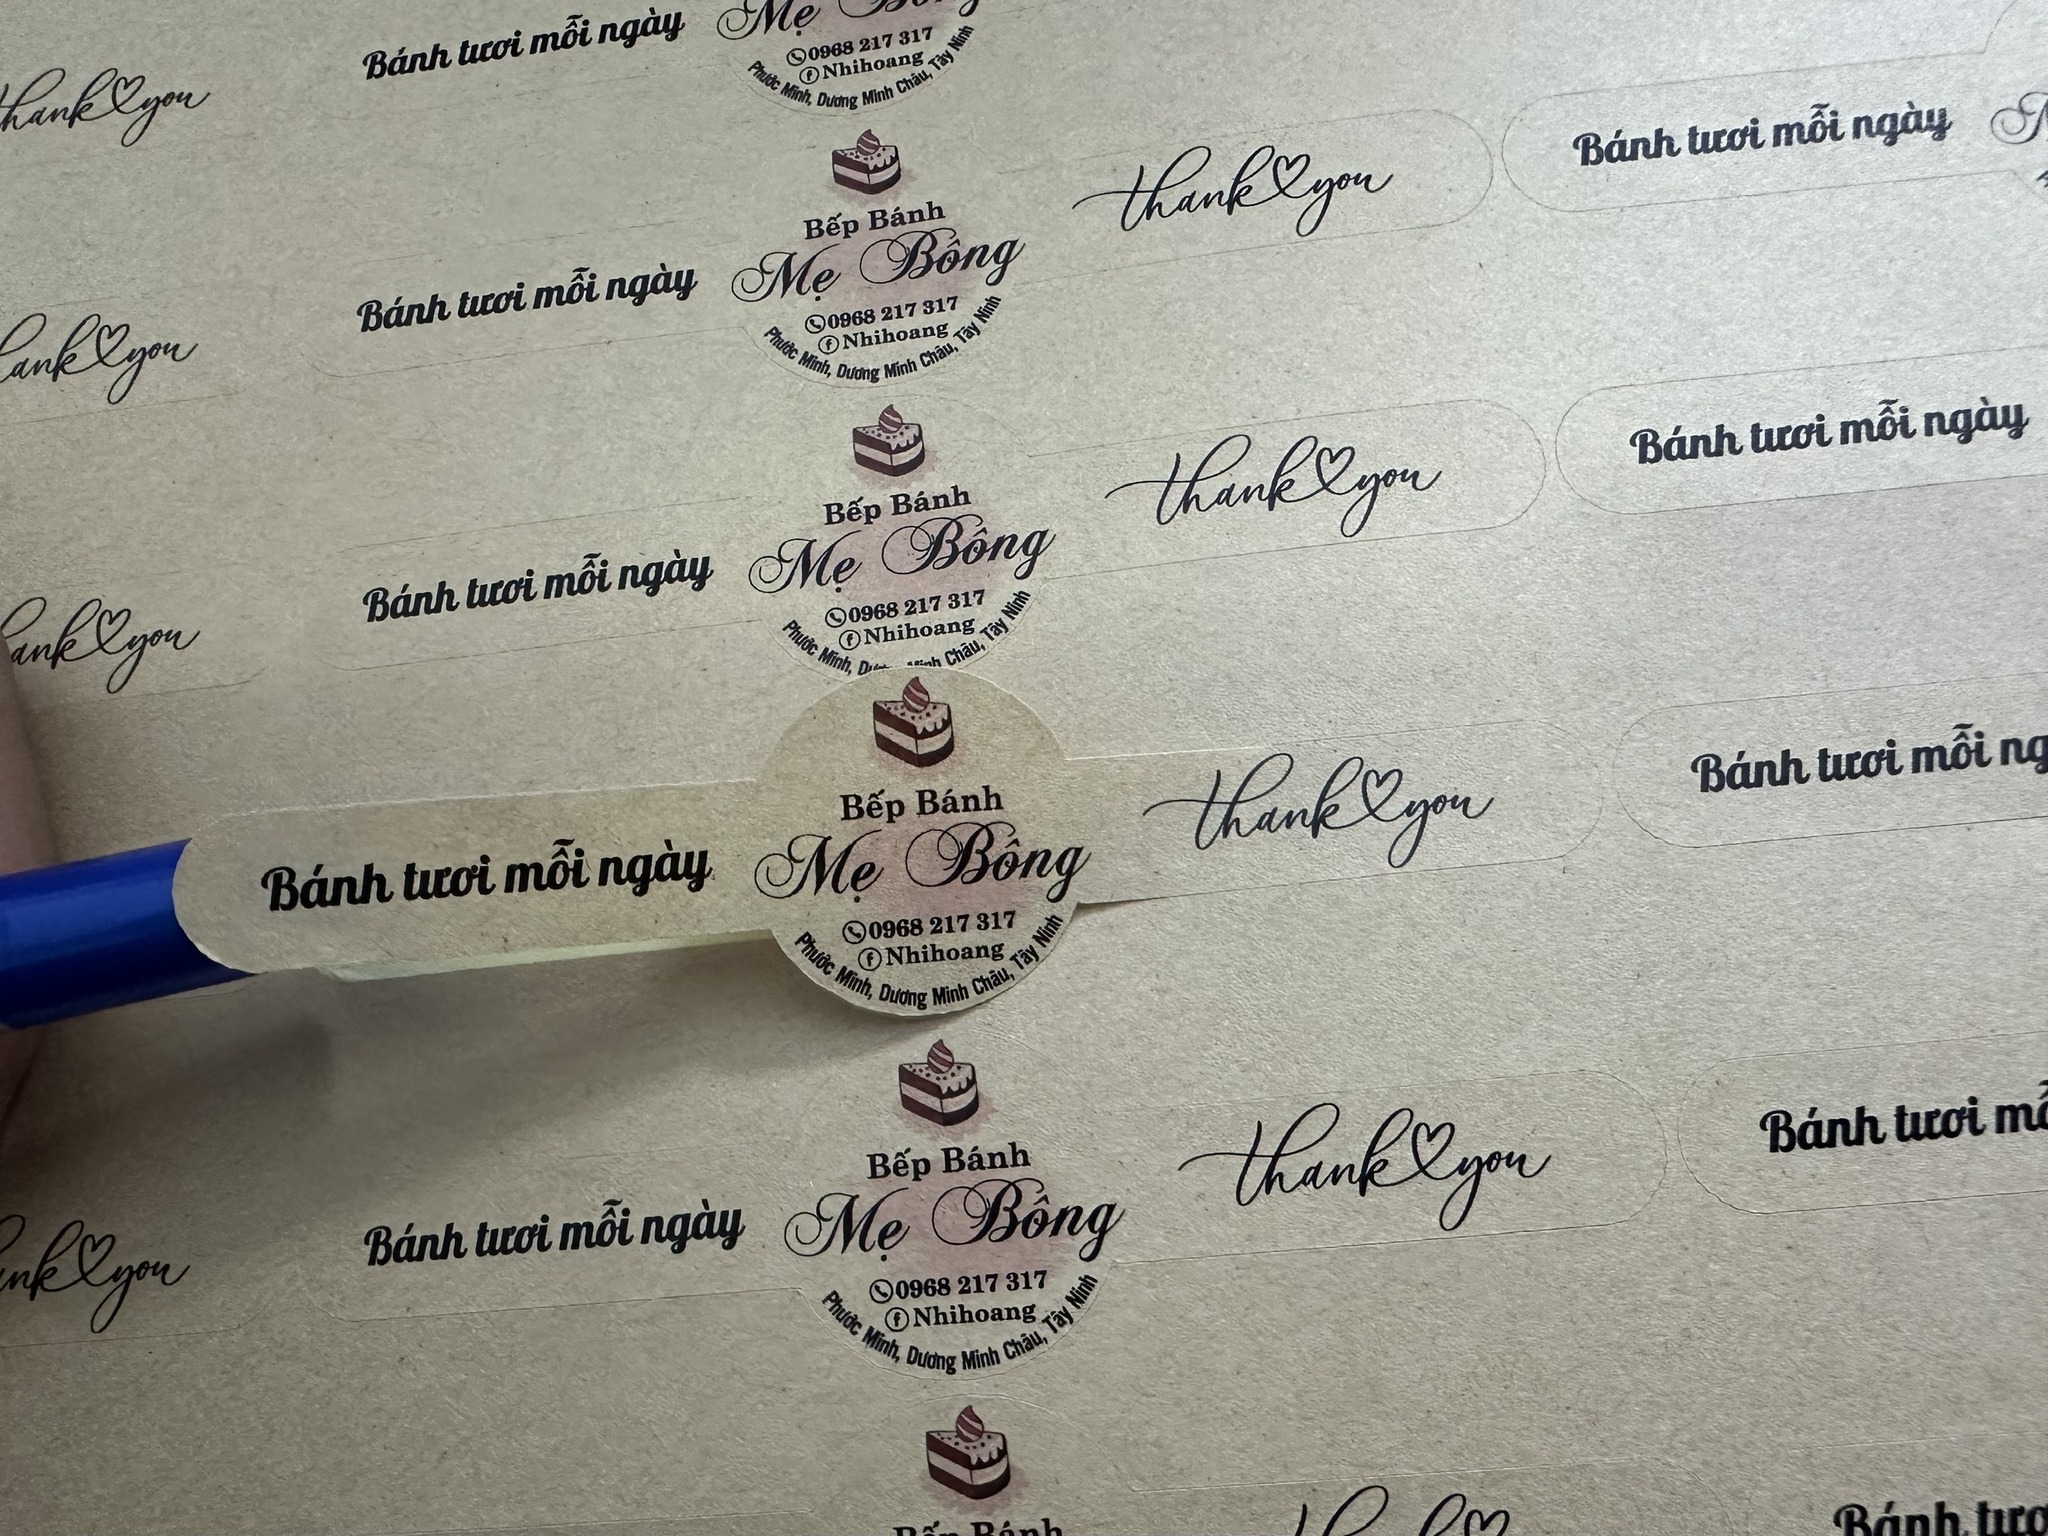 Mẹ Bông
Bánh tươi mỗi ngày
0968 217 317
Nhihoang
Phước Minh, Dương Minh Châu, Tây Ninh
thank you
Bánh tươi mỗi ngày
Bếp Bánh
thank you
Bánh tươi mỗi ngày
Mẹ Bông
0968 217 317
Nhihoang
Phước Minh, Dương Minh Châu, Tây Ninh
thank you
Bếp Bánh
thank you
Bánh tươi mỗi ngày
Bánh tươi mỗi ngày
Mẹ Bông
0968 217 317
Nhihoang
Phước Minh, Dương Minh Châu, Tây Ninh
thank you
Bếp Bánh
thank you
Bánh tươi mỗi ng
Bánh tươi mỗi ngày
Mẹ Bông
0968 217 317
Nhihoang
Phước Minh, Dương Minh Châu, Tây Ninh
Bếp Bánh
thank you
Bánh tươi mỗ
nk you
Bánh tươi mỗi ngày
Mẹ Bông
0968 217 317
Nhihoang
Phước Minh, Dương Minh Châu, Tây Ninh
Bếp Bánh
Bánh tươ